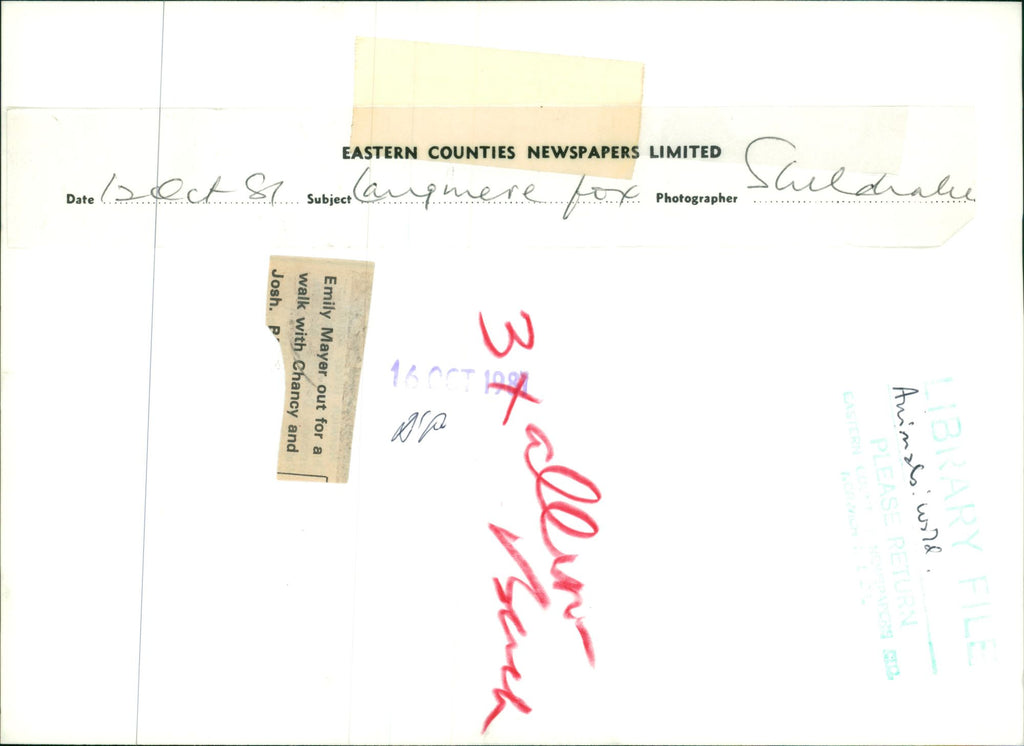 EASTERN COUNTIES NEWSPAPERS LIMITED
Date 12 Oct 81 Subject Langmere fox Photographer Sheldrake
Emily Mayer out for a
walk with Chancy and
Josh.
16 OCT 1981
3 x
LIBRARY FILE
Animals: wild.
PLEASE RETURN
EASTERN COUNTIES NEWSPAPERS LTD